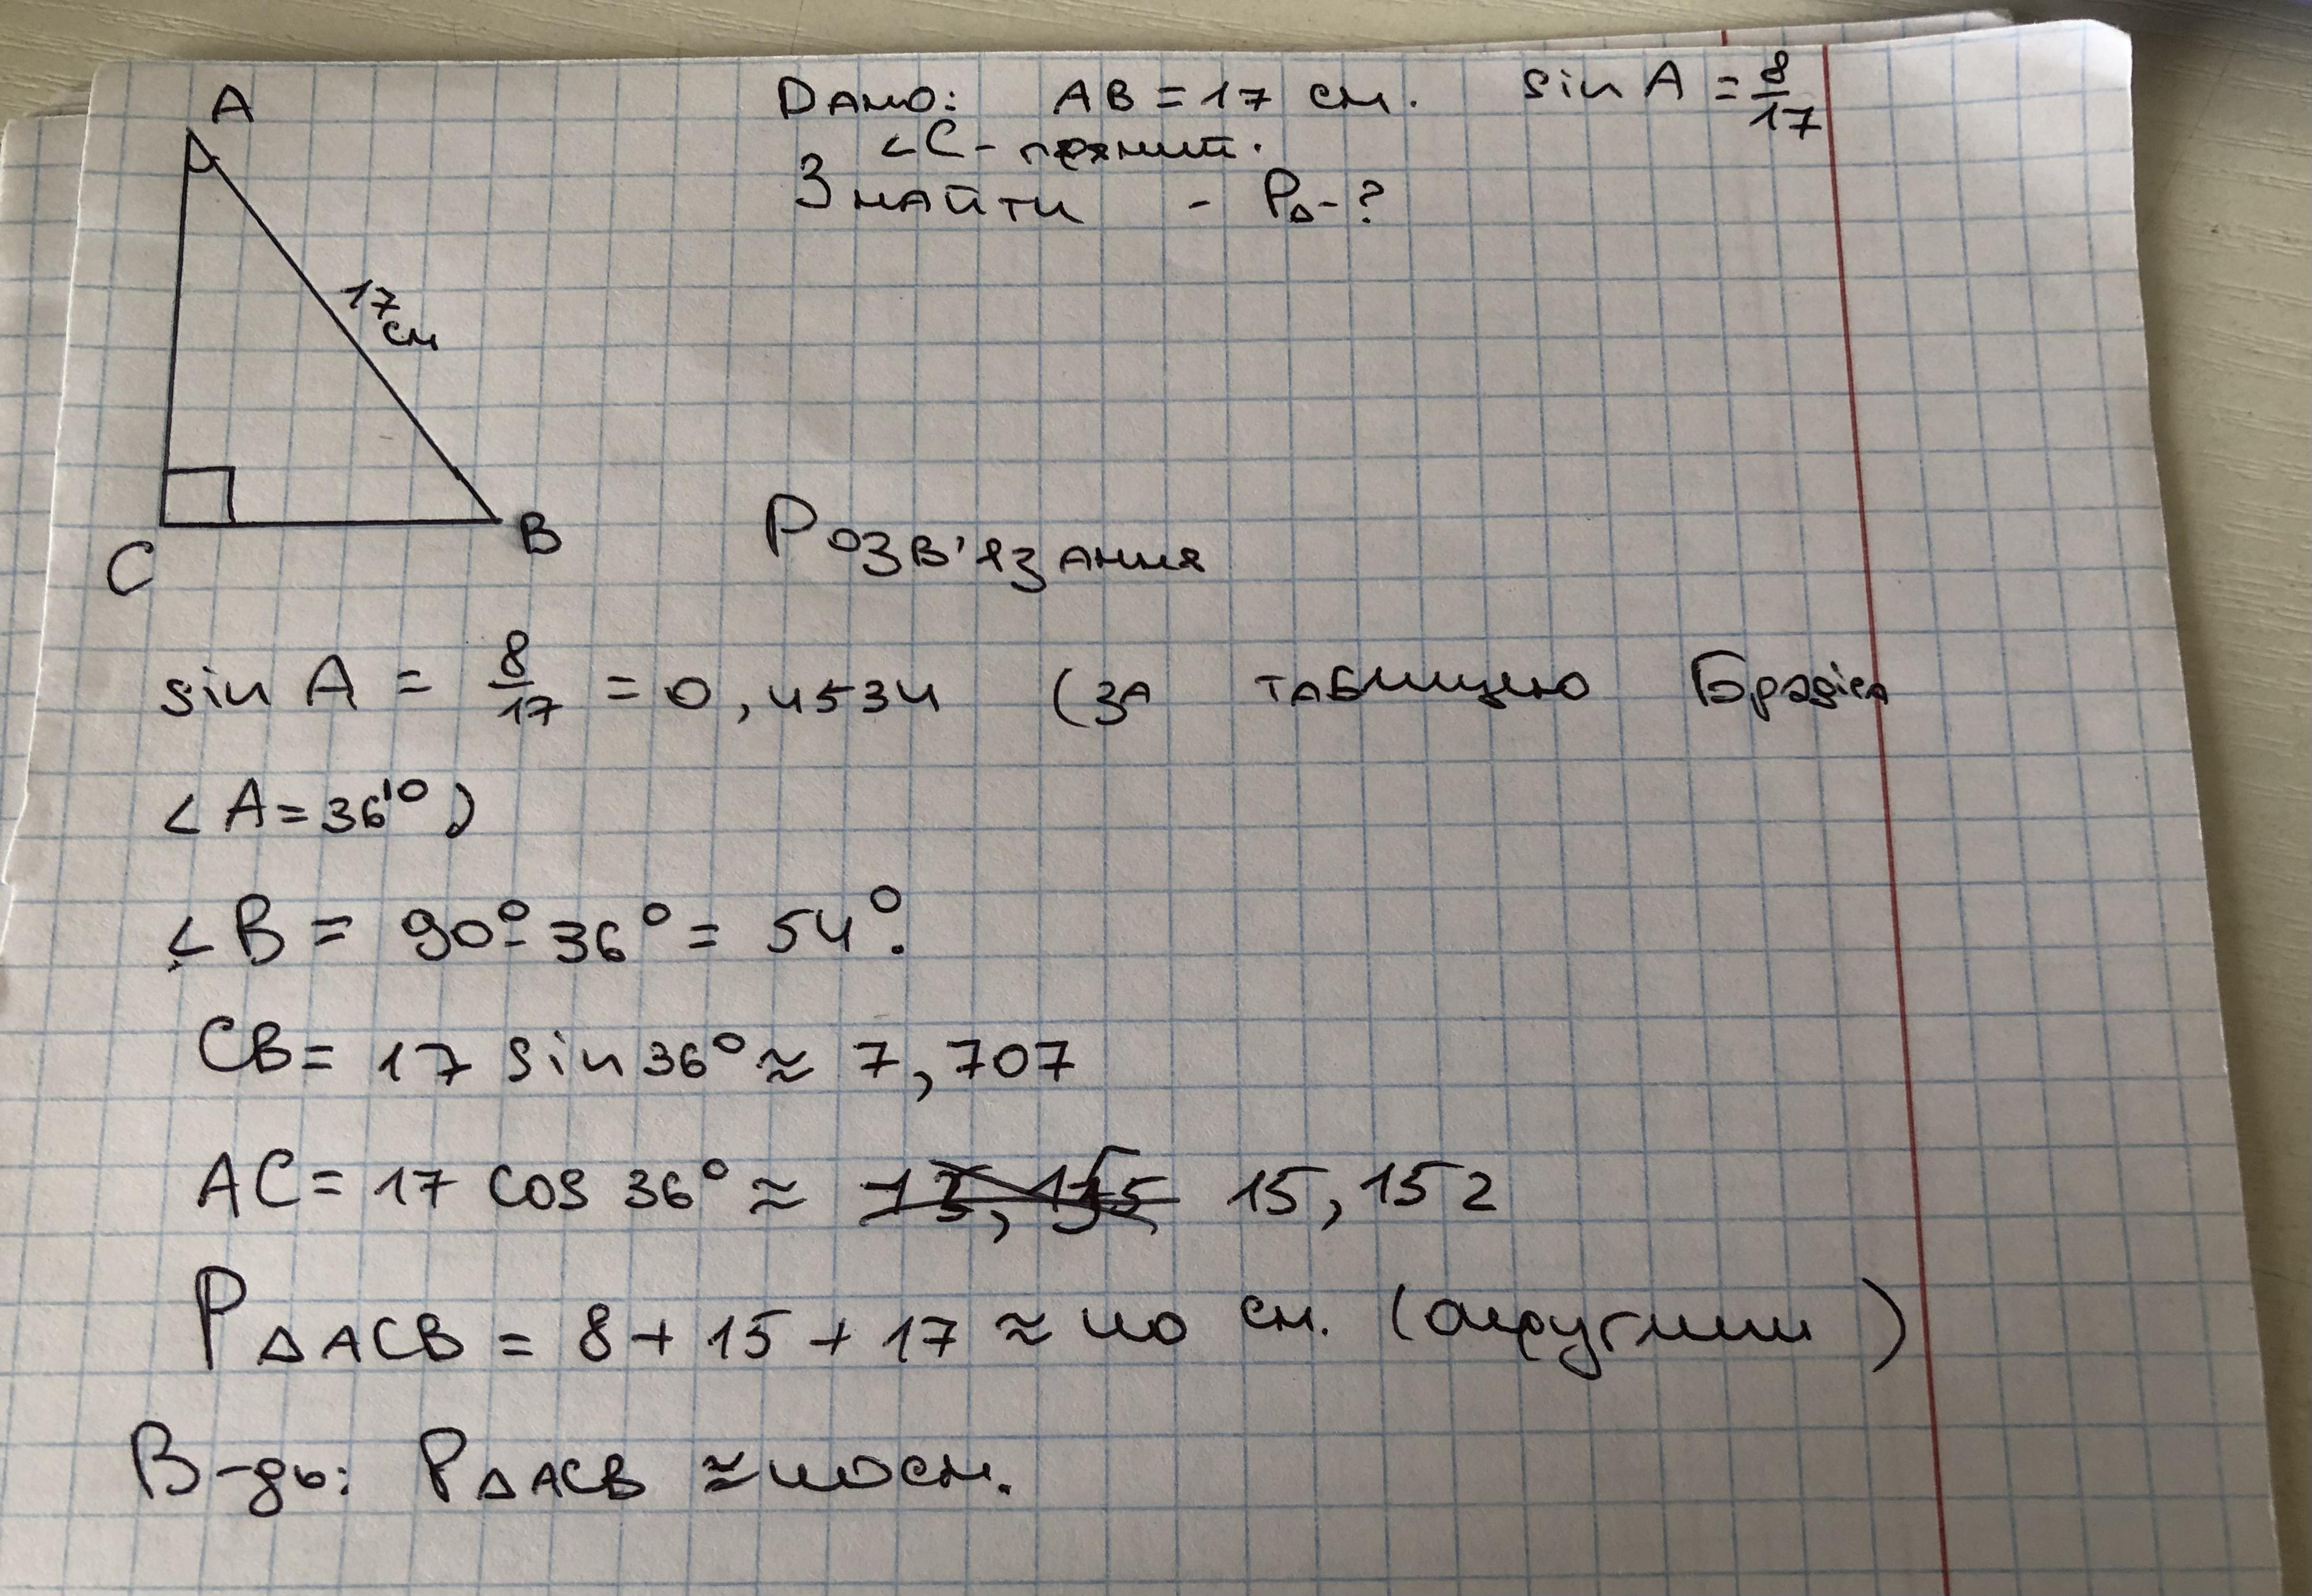 A
Дано: AB = 17 см. sin A = 8/17
∠C - прямий.
Знайти - P△ - ?
17 см
C
B
Розв'язання
sin A = 8/17 = 0,4534 (за таблицею Брадіса
∠A = 36'°)
∠B = 90° - 36° = 54°.
CB = 17 sin 36° ≈ 7,707
AC = 17 cos 36° ≈ 15,152
P△ACB = 8 + 15 + 17 ≈ 40 см. (округлили)
В-дь: P△ACB ≈ 40 см.